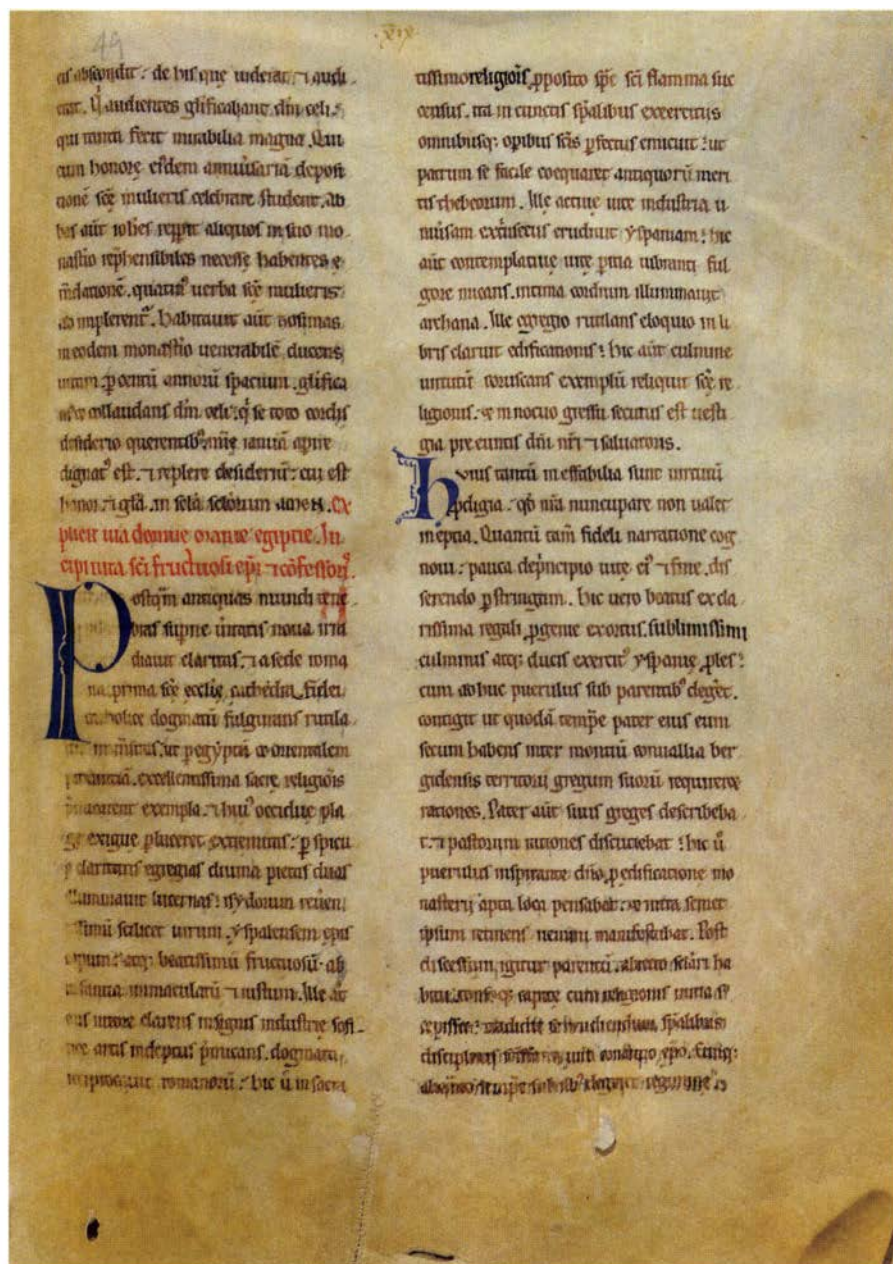 49
xix
cis abscondit. de his que uiderat. ⁊ audi
erat. Qi audientes glificabant dm celi.
qui tanta fecit mirabilia magna. Qui
cum honore eisdem anniuersariā deposi
tionē scę mulieris celebrare student. Ab
bas aūt ioħes repp̄it aliquos in suo mo
nastio rephensibiles necesse habentes e
m̄dationē. quatin⁹ uerba scę mulieris
adimplerent̄. Habitauit aūt zosimas
in eodem monastio uenerabilē ducens
uitam. p centū annorū spacium. glifica
collaudans dm celi. q̄ se toto cordis
desiderio querentib⁹. mīe ianuā apire
dignat⁹ est. ⁊ replere desideriū. cui est
honor. ⁊ gła. in scła scłorum amen. Ex
plicit uita domne marie egiptie. In
cipit uita sci fructuosi epi ⁊ c̄fessoris.
Postq̄m antiquas mundi tene
bras supne ūitatis noua irra
diauit claritas. ⁊ a sede roma
na prima scę ecclie cathedra fidei
catholice dogmatū fulgurans rutila
ut p egyptū ⁊ orientalem
prouintiā. excellentissima sacrę religiōis
exempla. ⁊ hui⁹ occidue pla
ge exigue pluceret extremitas. p spicu
e claritatis egregias diuina pietas duas
illuminauit lucernas. isydorum reuen
tissimū scilicet uirum. yspalensem epis
copum. atq; beatissimū fructuosū. ab
infantia immaculatū ⁊ iustum. Ille aūt
oris nitore clarens insignis industrie sofi
tice artis indeptus p̄micans. dogmata
reciprocauit romanorū. hic ū in sacra
tissimo religiōis pposito spc sci flamma suc
census. ita in cunctis spalibus exercitus
omnibusq; opibus scis pfectus emicuit. ut
patrum se facile coequaret antiquorū meri
tis thebeorum. Ille actiue uite industria u
niūsam extīsecus erudiuit yspaniam. hic
aūt contemplatiue uite pitia uibranti ful
gore micans. intima cordium illuminauit
archana. Ille egregio rutilans eloquio in li
bris claruit edificationis. hic aūt culmine
uirtutū coruscans exemplū reliquit scę re
ligionis. ⁊ innocuo gressu secutus est uesti
gia preeuntis dm̄ nr̄i ⁊ saluatoris.
Huius tantū ineffabilia sunt uirtutū
pdigia. qd nr̄a nuncupare non ualet
ineptia. Quantū tam̄ fideli narratione cog
noui. pauca dep̄ncipio uite ei⁹ ⁊ fine. dis
serendo pstringam. hic uero beatus ex cla
rissima regali pgenie exortus. sublimissimi
culminis atq; ducis exercit⁹ yspanię ples.
cum adhuc puerulus sub parentib⁹ deget.
contigit ut quodā tempe pater eius eum
secum habens inter montiū conuallia ber
gidensis territorii gregum suorū requireret
rationes. Pater aūt suus greges describeba
t. ⁊ pastorum rationes discutiebat. hic ū
puerulus inspirante dno. p edificatione mo
nasterii apta loca pensabat. ⁊ intra semet
ipsum retinens nemini manifestabat. Post
discessum igitur parentū. abiecto sclari ha
bitu. tonsoq; capite cum religionis initia s
cepisset. tradidit se erudiendum spalibus
disciplinis uiro conantio epo. Cumq;